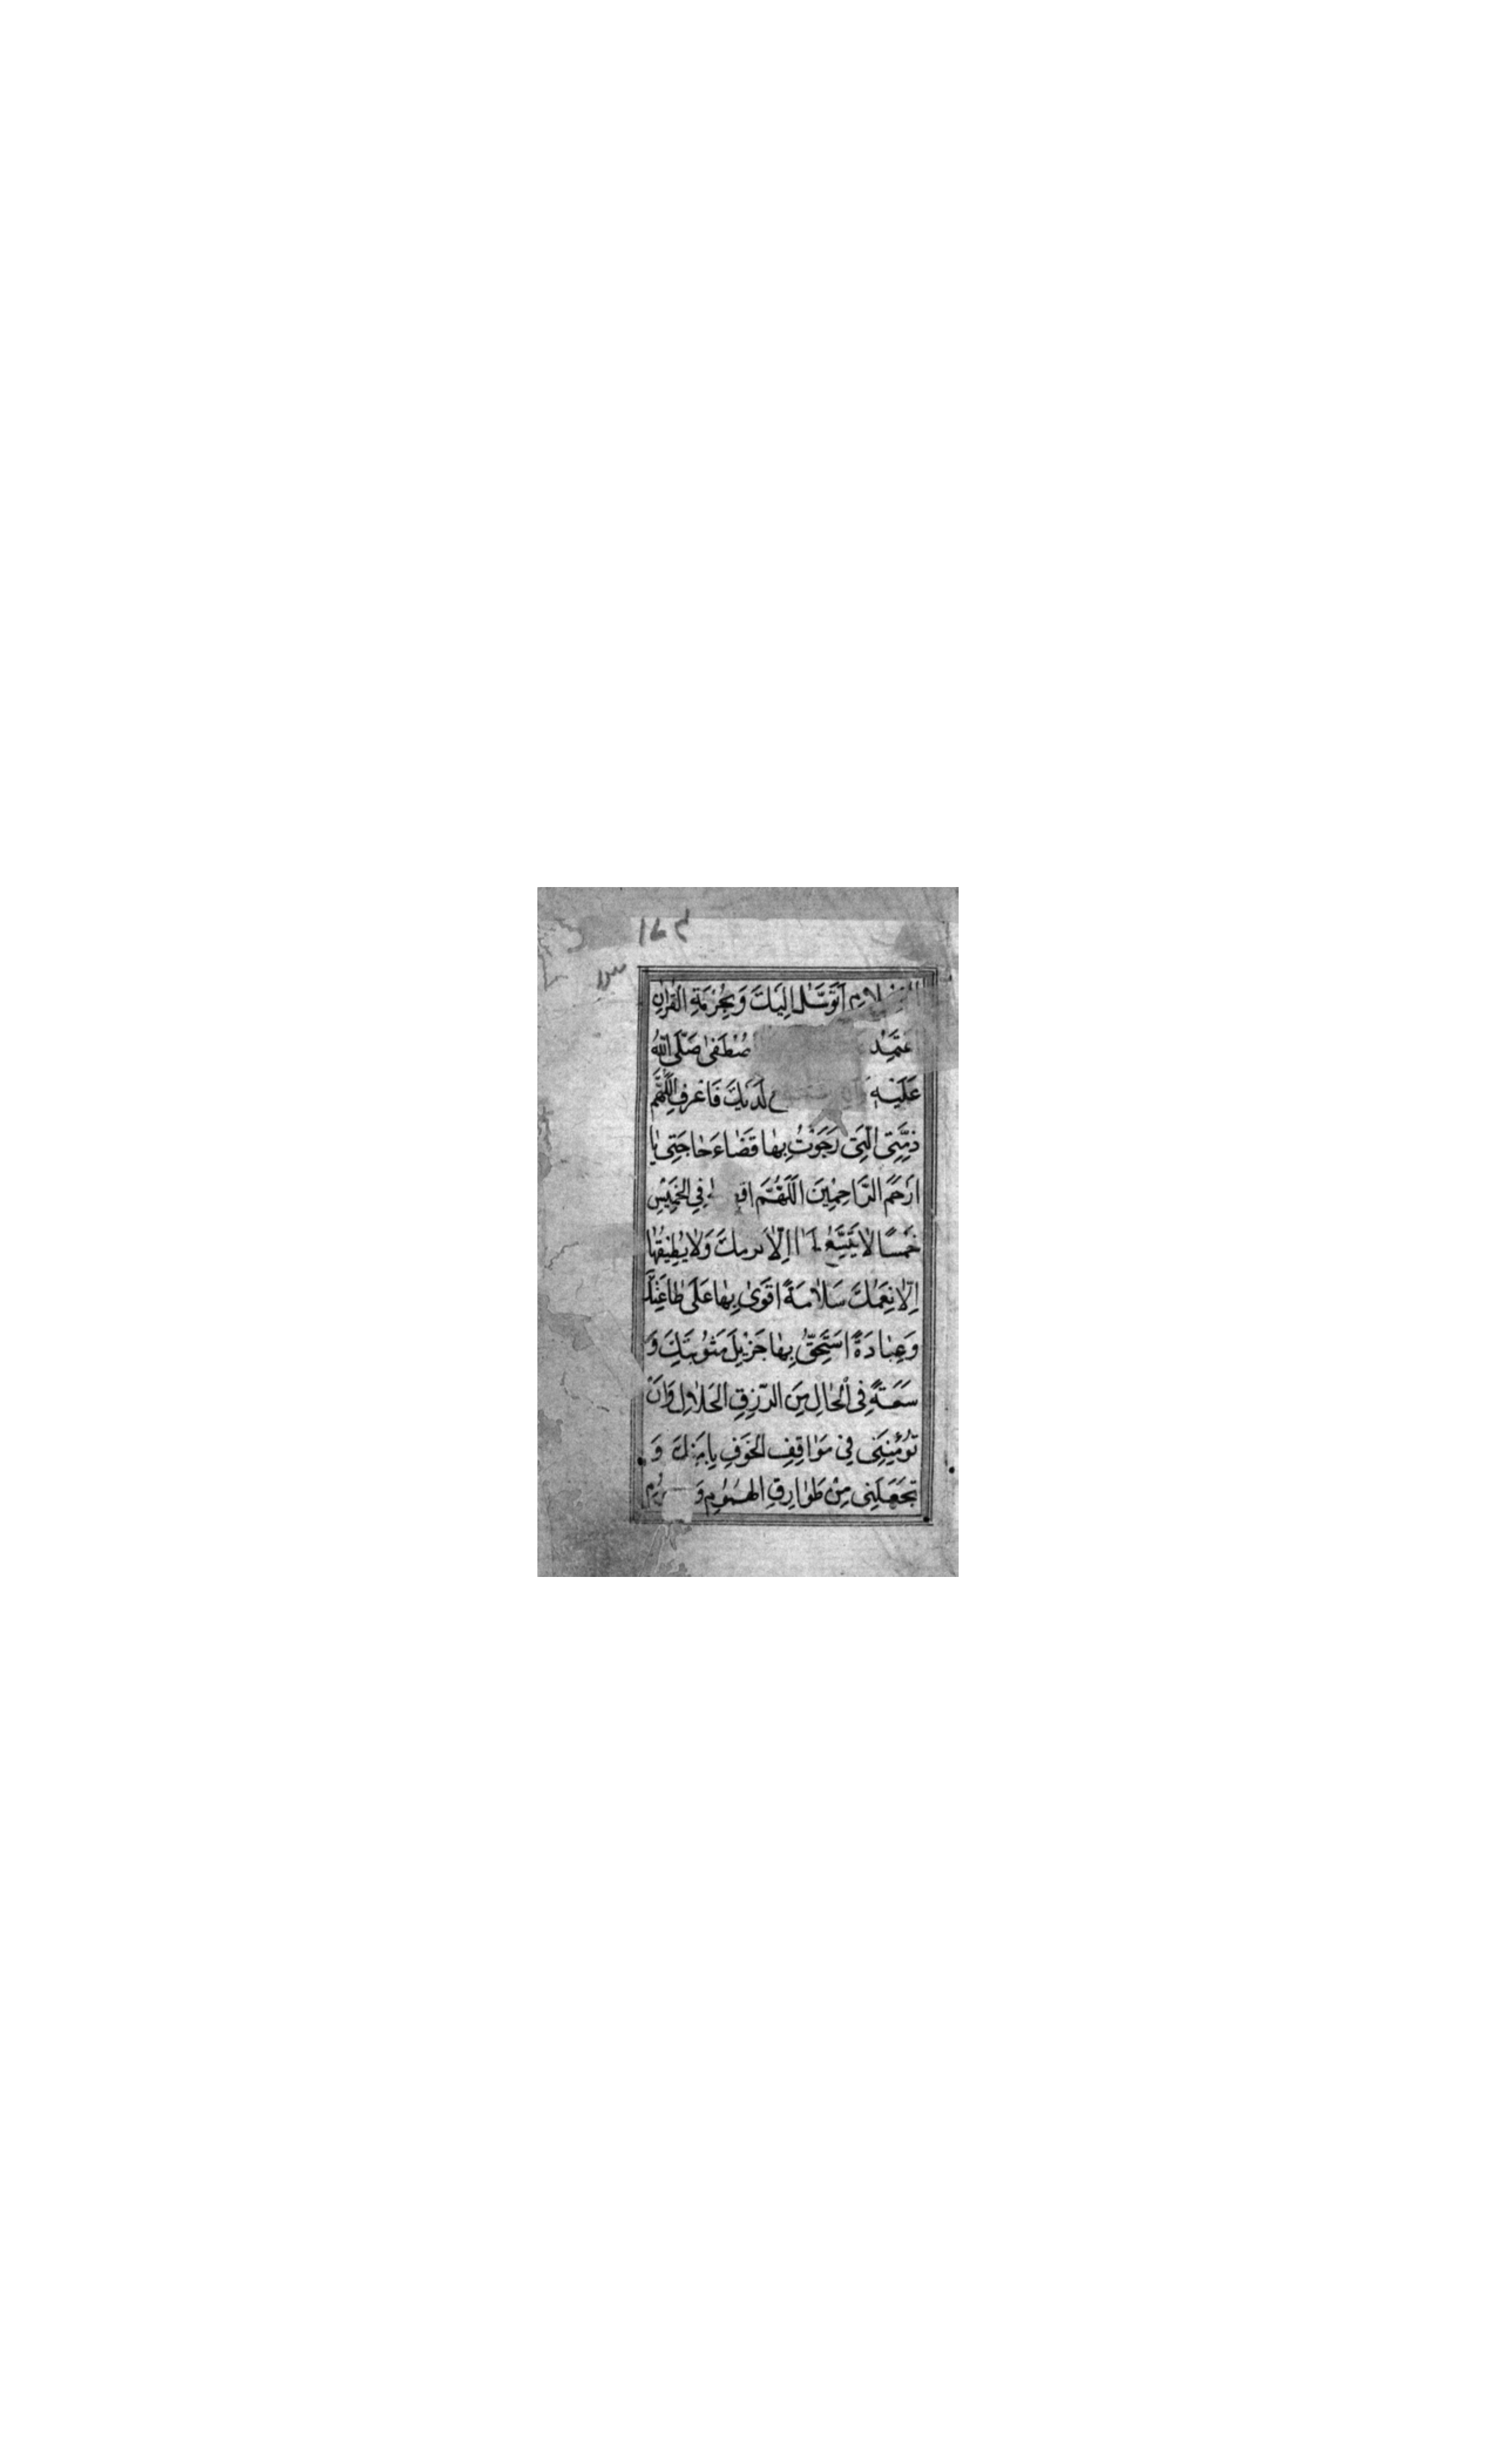 الاسلام اَتَوَسَّلُ اِلَيْكَ وَبِحُرْمَةِ الْقُرْاٰنِ
اَعْتَمِدُ صْطَفىٰ صَلَّى اللّٰهُ
عَلَيْهِ لَدَيْكَ فَاعْرِفِ اللّٰهُمَّ
ذِمَّتِىَ الَّتِى رَجَوْتُ بِهٰا قَضٰاءَ حٰاجَتِى يٰا
اَرْحَمَ الرَّاحِمِيْنَ اَللّٰهُمَّ فِى الْخَمِيْسِ
خَمْسًا لا يَتَّسِعُ اِلّٰا كرمك وَلا يُطِيْقُهٰا
اِلّٰا نِعَمُكَ سَلامَةً اَقْوىٰ بِهٰا عَلىٰ طٰاعَتِكَ
وَعِبٰادَةً اَسْتَحِقُّ بِهٰا جَزِيْلَ مَثُوْبَتِكَ وَ
سَعَةً فِى الْحٰالِ مِنَ الرِّزْقِ الْحَلالِ وَاَنْ
تُؤْمِنَنِى فِى مَوٰاقِفِ الْخَوْفِ بِاَمْنِكَ وَ
تَجْعَلَنِى مِنْ طَوٰارِقِ الْهُمُوْمِ وَ